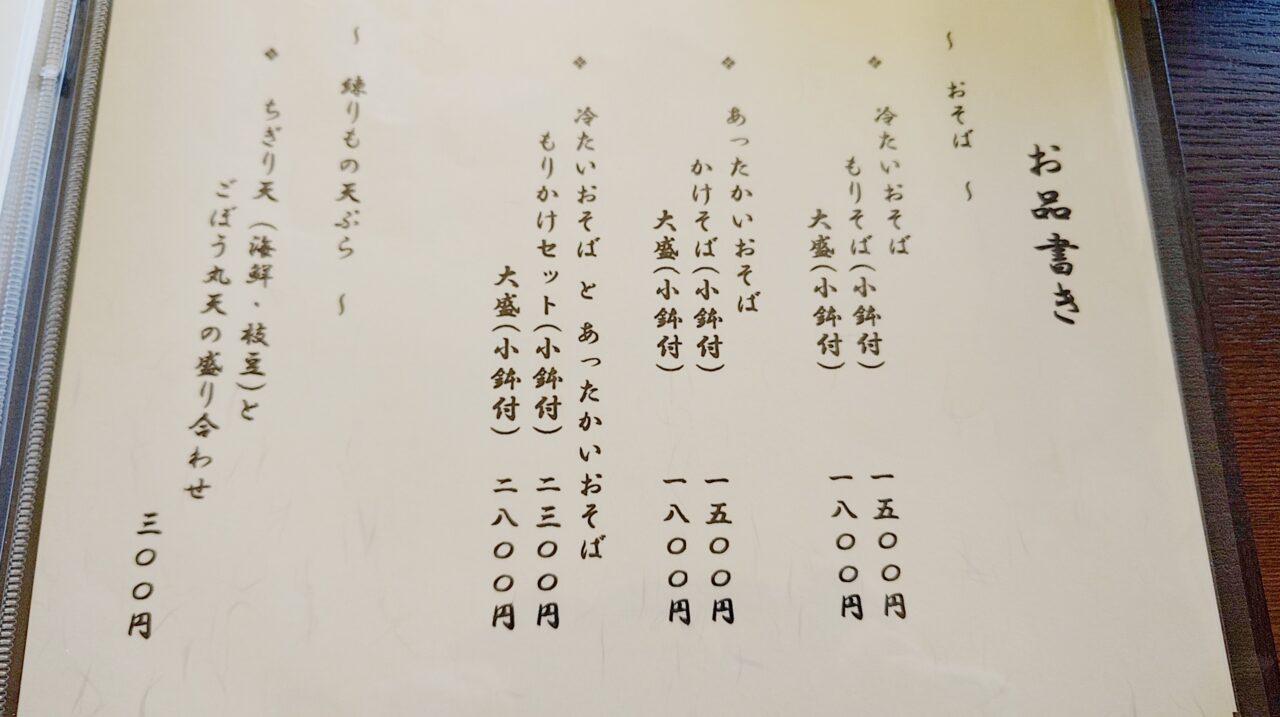 お品書き
～ おそば ～
❖ 冷たいおそば
もりそば(小鉢付) 一五〇〇円
大盛(小鉢付) 一八〇〇円
❖ あったかいおそば
かけそば(小鉢付) 一五〇〇円
大盛(小鉢付) 一八〇〇円
❖ 冷たいおそば と あったかいおそば
もりかけセット(小鉢付) 二三〇〇円
大盛(小鉢付) 二八〇〇円
～ 練りもの天ぷら ～
❖ ちぎり天(海鮮・枝豆)と
ごぼう丸天の盛り合わせ
三〇〇円